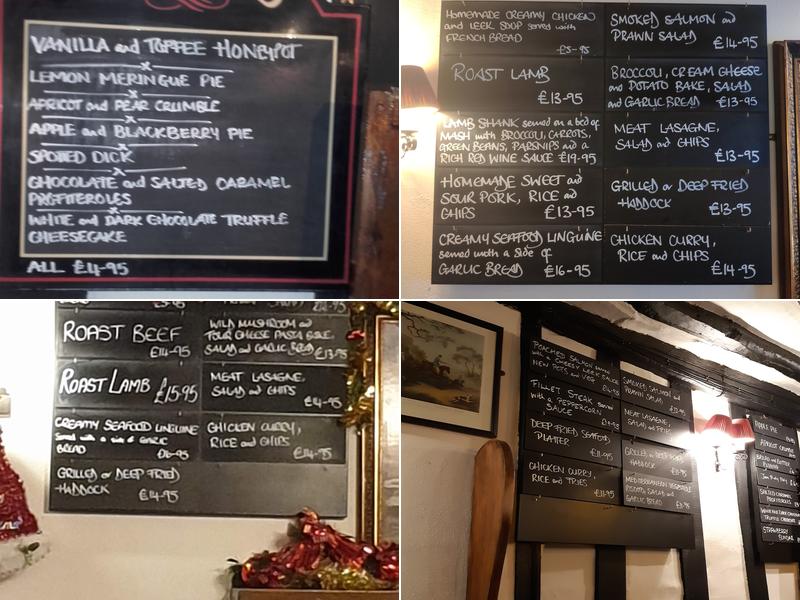 VANILLA and TOFFEE HONEYPOT
LEMON MERINGUE PIE
APRICOT and PEAR CRUMBLE
APPLE and BLACKBERRY PIE
SPOTTED DICK
CHOCOLATE and SALTED CARAMEL
PROFITEROLES
WHITE and DARK CHOCOLATE TRUFFLE
CHEESECAKE
ALL £4-95
HOMEMADE CREAMY CHICKEN
and LEEK SOUP served with
FRENCH BREAD
£5-95
ROAST LAMB
£13-95
LAMB SHANK served on a bed of
MASH with BROCCOLI, CARROTS,
GREEN BEANS, PARSNIPS and a
RICH RED WINE SAUCE £19-95
HOMEMADE SWEET and
SOUR PORK, RICE and
CHIPS £13-95
CREAMY SEAFOOD LINGUINE
served with a side of
GARLIC BREAD £16-95
SMOKED SALMON and
PRAWN SALAD
£14-95
BROCCOLI, CREAM CHEESE
and POTATO BAKE, SALAD
and GARLIC BREAD £13-95
MEAT LASAGNE,
SALAD and CHIPS
£13-95
GRILLED or DEEP FRIED
HADDOCK £13-95
CHICKEN CURRY,
RICE and CHIPS
£14-95
ROAST BEEF
£14-95
ROAST LAMB £15.95
CREAMY SEAFOOD LINGUINE
Served with a side of GARLIC
BREAD £16-95
GRILLED or DEEP FRIED
HADDOCK £14-95
WILD MUSHROOM and
FOUR CHEESE PASTA BAKE,
SALAD and GARLIC BREAD £13-95
MEAT LASAGNE,
SALAD and CHIPS
£14-95
CHICKEN CURRY,
RICE and CHIPS £14-95
POACHED SALMON
with a CHEESY LEEK SAUCE
NEW POTS and VEG
FILLET STEAK served
with a PEPPERCORN
SAUCE
DEEP FRIED SEAFOOD
PLATTER
CHICKEN CURRY,
RICE and FRIES
SMOKED SALMON and
PRAWN SALAD
MEAT LASAGNE,
SALAD and FRIES
GRILLED or DEEP FRIED
HADDOCK
MEDITERRANEAN VEGETABLE
RISOTTO, SALAD and
GARLIC BREAD
APPLE PIE
APRICOT CRUMBLE
SALTED CARAMEL
PROFITEROLES
WHITE and DARK CHOCOLATE
TRUFFLE CHEESECAKE
STRAWBERRY
SUNDAE